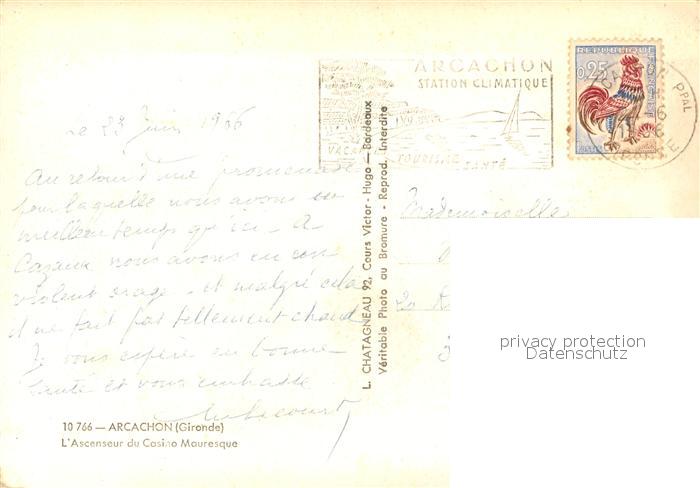 ARCACHON
STATION CLIMATIQUE
TOURISME
SANTÉ
RÉPUBLIQUE
FRANÇAISE
0,25
POSTES
ARCACHON PPAL
GIRONDE
Le 23 Juin 1966
Au retour d'une promenade
pour laquelle nous avons eu
meilleur temps qu'ici - A
Cazaux nous avons eu un
violent orage - et malgré cela
il ne fait pas tellement chaud
Je vous espère en bonne
santé et vous embrasse
Mademoiselle
L. CHATAGNEAU 92, Cours Victor - Hugo — Bordeaux
Véritable Photo au Bromure - Reprod. Interdite
privacy protection
Datenschutz
10 766 — ARCACHON (Gironde)
L'Ascenseur du Casino Mauresque